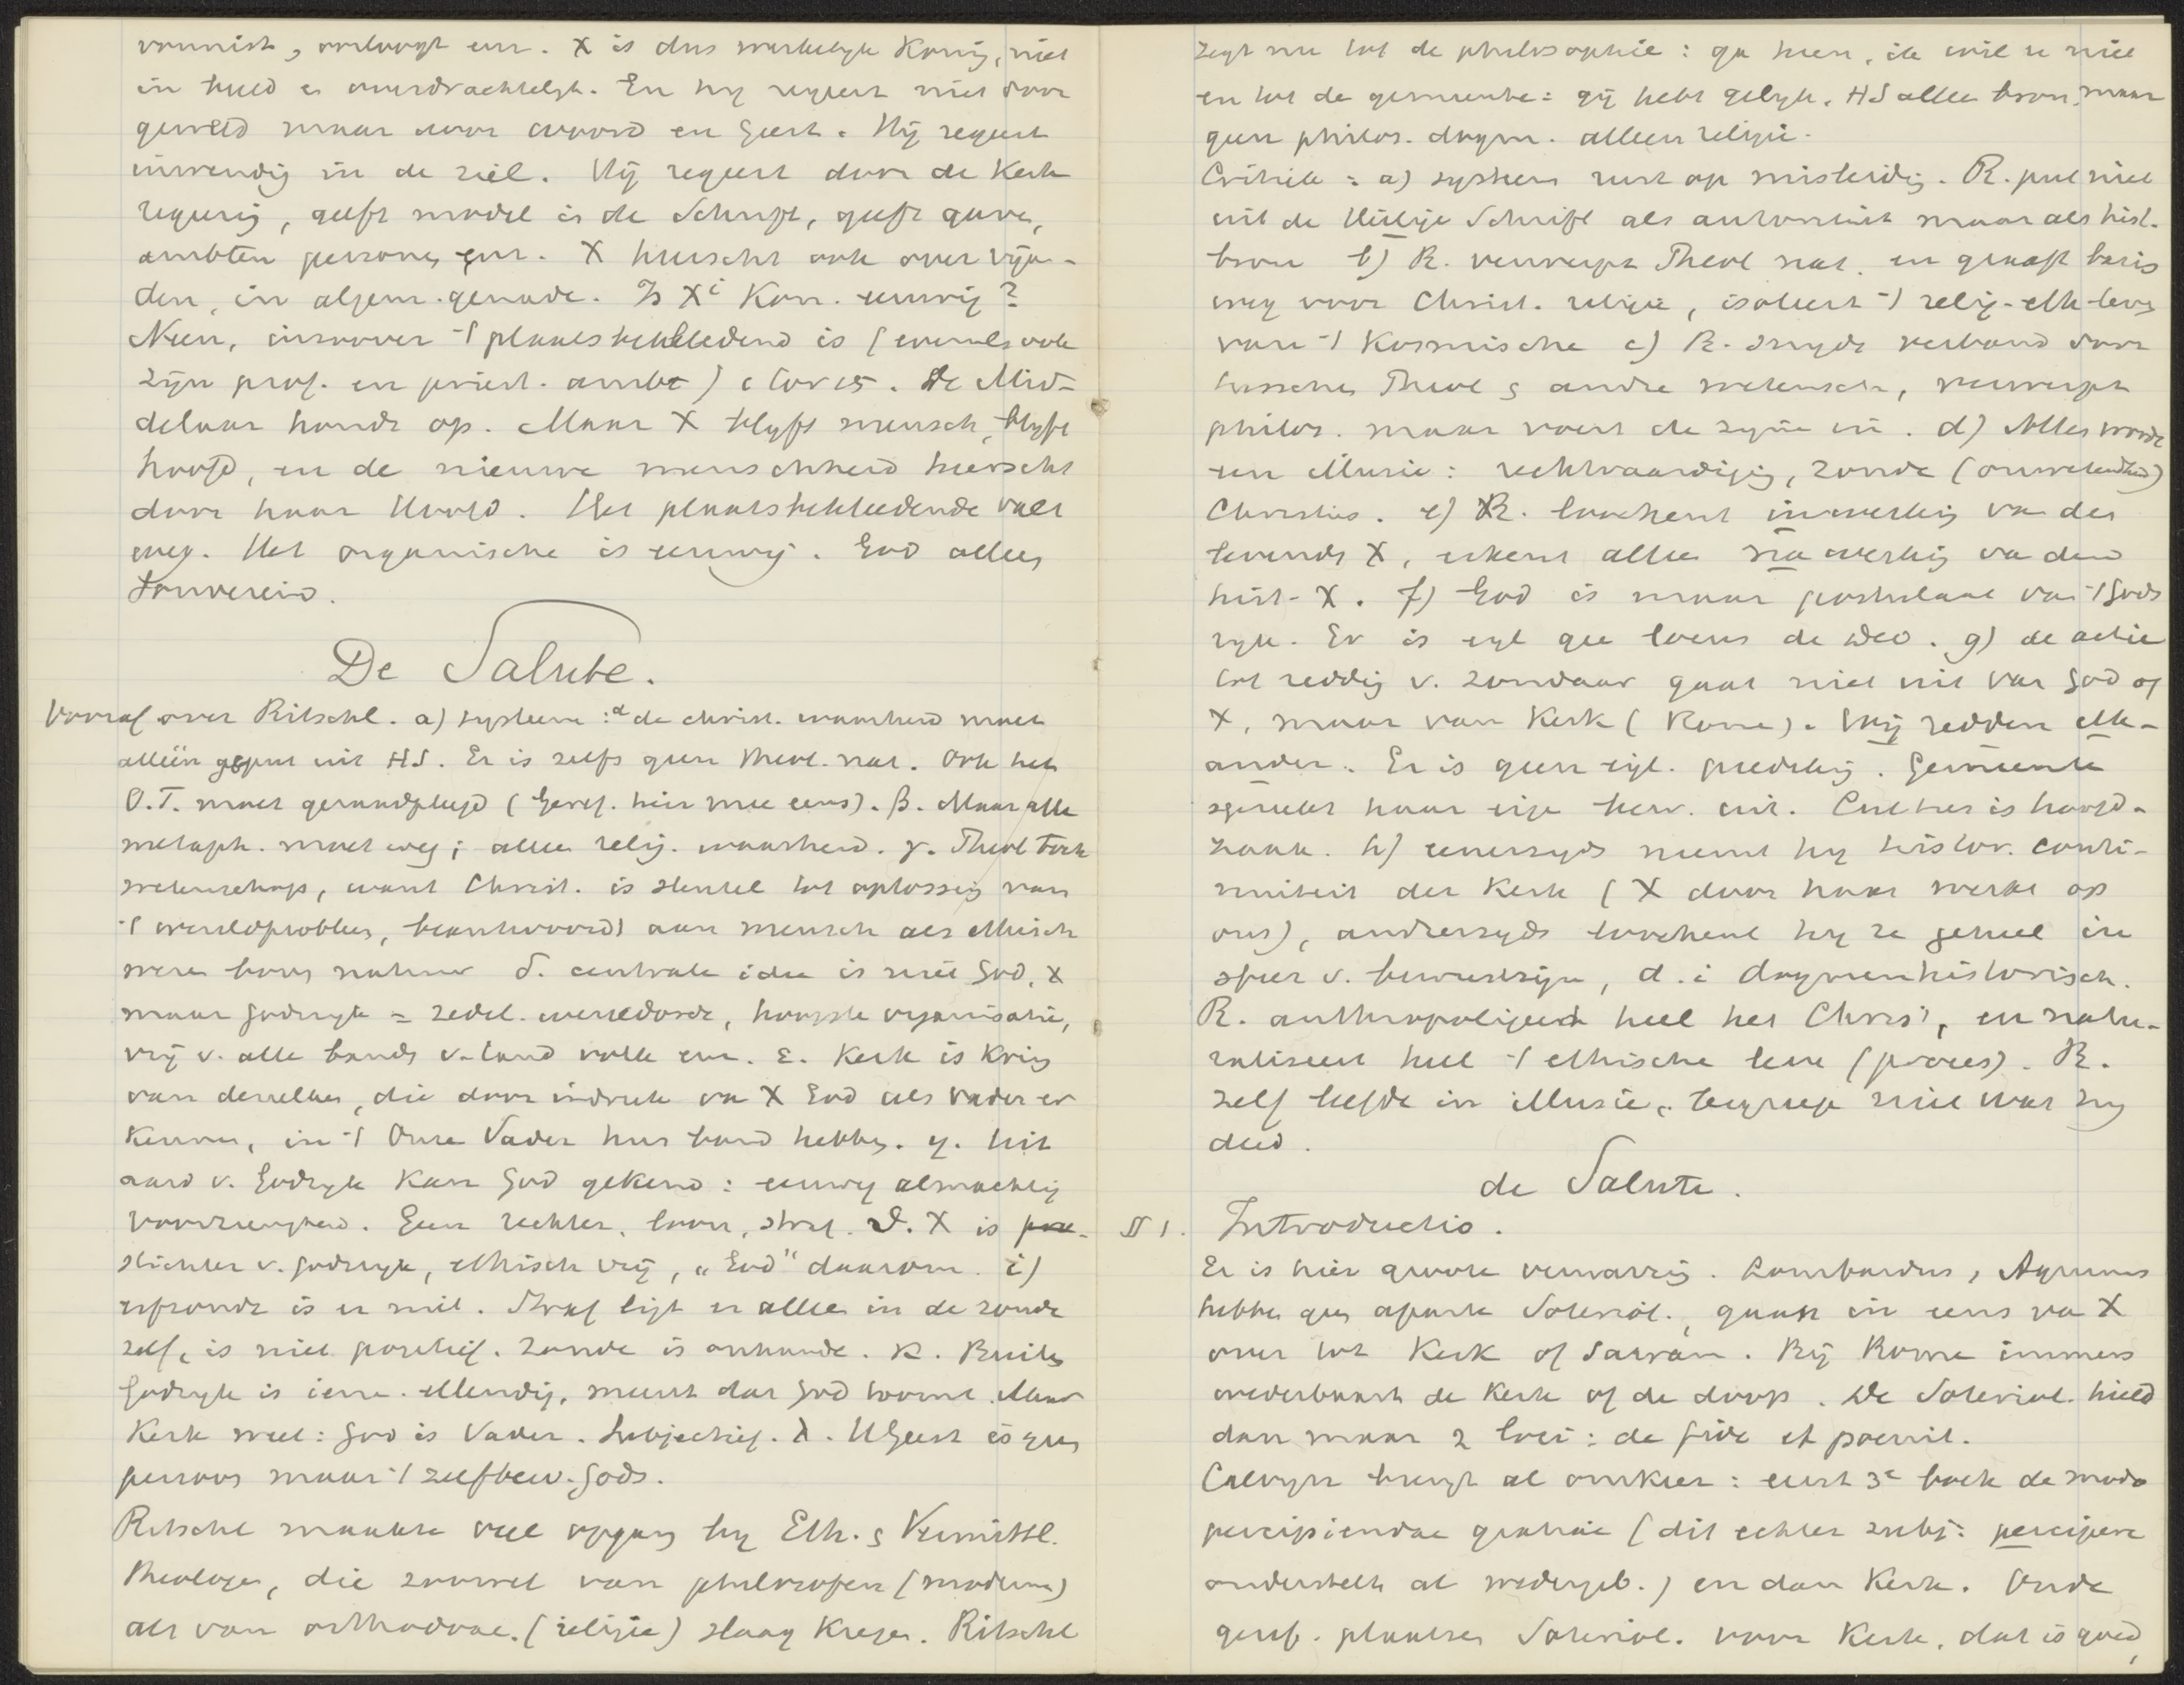 vonnist, oorloogt enz. X is dus werkelyk Konig, niet
in beeld en overdrachtelyk. En hy regeert niet door
geweld maar door woord en Geest. Hij regeert
inwendig in de ziel. Hij regeert door de Kerk
regering, geeft model in de Schrift, geeft gaven,
ambten personen enz. X heerscht ook over vijan-
den, in algem. genade. Is Xi Kon. eeuwig?
Neen, inzoover 't plaatsbekleedend is (evenals ook
zijn prof. en priest. ambt) 1 Cor 15. De Mid-
delaar houdt op. Maar X blyft mensch, blyft
hoofd, en de nieuwe menschheid heerscht
door haar Hoofd. Het plaatsbekleedende valt
weg. Het organische is eeuwig. God alleen
souverein.
De Salute.
Vooraf over Ritschl. a) systeem: α de christ. waarheid moet
alleen geput uit HS. Er is zelfs geen Theol. nat. Ook het
O.T. moet geraadpleegd (Geref. hier mee eens). β. Maar alle
metaph. moet weg; alleen relig. waarheid. γ. Theol toch
wetenschap, want Christ. is sleutel tot oplossing van
't wereldprobleem, beantwoordt aan mensch als ethisch
wezen boven natuur δ. centrale idee is niet God, X
maar godsryk = zedel. wereldorde, hoogste organisatie,
vrij v. alle banden v. land volk enz. ε. Kerk is Kring
van dezelken, die door indruk van X God als Vader er
kennen, in 't Onze Vader hun band hebben. η. Uit
aard v. Godsryk kan God gekend: eeuwig almachtig
voorzienigheid. Geen rechter, toorn, straf. ϑ. X is
stichter v. godsryk, ethisch vrij, „God" daarom. i)
erfzonde is er niet. Straf ligt er alleen in de zonde
zelf, is niet positief. Zonde is onkunde. κ. Buiten
Godsryk is iem. ellendig, meent dat God toornt. Maar
Kerk weet: God is Vader. Subjectief. λ. HGeest is geen
persoon maar 't zelfbew. Gods.
Ritschl maakte veel opgang by Eth. & Vermittl.
Theologen, die zoowel van philosofen (modernen)
als van orthodoxe (religie) slaag kregen. Ritschl
zegt nu tot de philosophie: ga heen, ik wil u niet
en tot de gemeente: gij hebt gelyk, HS alleen bron, maar
geen philos. dogm. alleen religie.
Critiek: a) systeem rust op misleidig. R. put niet
uit de Heilige Schrift als autoriteit maar als hist.
bron b) R. verwerpt Theol nat. en graaft basis
weg voor Christ. religie, isoleert 't relig-eth-leven
van 't Kosmische c) R. snydt verband door
tusschen Theol & andre wetensch, verwerpt
philos. maar voert de zyne in. d) Alles wordt
een illusie: rechtvaardiging, zonde (onwetendheid)
Christus. e) R. loochent inwerking van den
levenden X, erkent alleen nawerking van den
hist- X. f) God is maar postulaat van 't Gods
ryk. Er is eigl gee locus de Deo. g) de actie
tot redding v. zondaar gaat niet uit van God of
X, maar van Kerk (Rome). Wij redden elk-
ander. Er is geen eigl. prediking. Gemeente
spreekt haar eige bew. uit. Cultus is hoofd-
zaak. h) eenerzyds neemt hy histor. conti-
nuiteit der Kerk (X door haar werkt op
ons), anderzyds loochent hy ze geheel in
sfeer v. bewustzyn, d. i dogmenhistorisch.
R. anthropologiseert heel het Christ, en natu-
raliseert heel 't ethische leven (proces). R.
zelf leefde in illusie, begreep niet wat hy
deed.
de Salute.
§ 1. Introductio.
Er is hier groote verwarring. Lombardus, Aquinas
hebben geen aparte Soteriol., gaan in eens van X
over tot Kerk of Sacram. Bij Rome immers
wederbaart de Kerk of de doop. De Soteriol. hield
dan maar 2 loci: de fide et poenit.
Calvyn brengt al omkeer: eerst 3e boek de modo
percipiendae gratiae (dit echter subj: percipere
onderstelt al wedergeb.) en dan Kerk. Oude
geref. plaatsen Soteriol. voor Kerk, dat is goed,